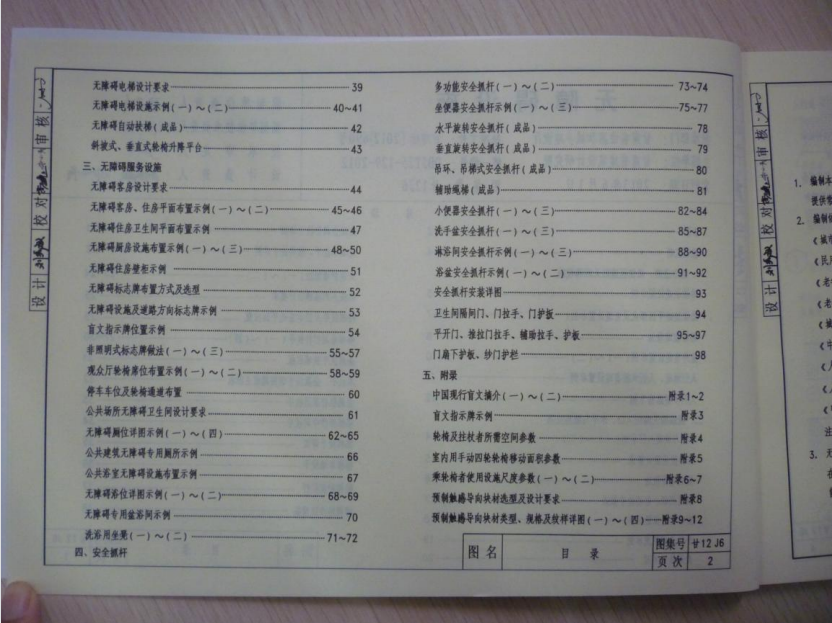 无障碍电梯设计要求 39
无障碍电梯设施示例(一)～(二) 40~41
无障碍自动扶梯(成品) 42
斜坡式、垂直式轮椅升降平台 43
三、无障碍服务设施
无障碍客房设计要求 44
无障碍客房、住房平面布置示例(一)～(二) 45~46
无障碍住房卫生间平面布置示例 47
无障碍厨房设施布置示例(一)～(三) 48~50
无障碍住房壁柜示例 51
无障碍标志牌布置方式及选型 52
无障碍设施及道路方向标志牌示例 53
盲文指示牌位置示例 54
非照明式标志牌做法(一)～(三) 55~57
观众厅轮椅席位布置示例(一)～(二) 58~59
停车车位及轮椅通道布置 60
公共场所无障碍卫生间设计要求 61
无障碍厕位详图示例(一)～(四) 62~65
公共建筑无障碍专用厕所示例 66
公共浴室无障碍设施布置示例 67
无障碍浴位详图示例(一)～(二) 68~69
无障碍专用盆浴间示例 70
洗浴用坐凳(一)～(二) 71~72
四、安全抓杆
多功能安全抓杆(一)～(二) 73~74
坐便器安全抓杆示例(一)～(三) 75~77
水平旋转安全抓杆(成品) 78
垂直旋转安全抓杆(成品) 79
吊环、吊梯式安全抓杆(成品) 80
辅助绳梯(成品) 81
小便器安全抓杆(一)～(三) 82~84
洗手盆安全抓杆(一)～(三) 85~87
淋浴间安全抓杆示例(一)～(三) 88~90
浴盆安全抓杆示例(一)～(二) 91~92
安全抓杆安装详图 93
卫生间隔间门、门拉手、门护板 94
平开门、推拉门拉手、辅助拉手、护板 95~97
门扇下护板、纱门护栏 98
五、附录
中国现行盲文摘介(一)～(二) 附录1~2
盲文指示牌示例 附录3
轮椅及拄杖者所需空间参数 附录4
室内用手动四轮轮椅移动面积参数 附录5
乘轮椅者使用设施尺度参数(一)～(二) 附录6~7
预制触感导向块材选型及设计要求 附录8
预制触感导向块材类型、规格及纹样详图(一)～(四) 附录9~12
图名 目录 图集号 甘12J6
页次 2
审核
校对
设计
审核
校对
设计
1. 编制本
2. 编制依
3. 无